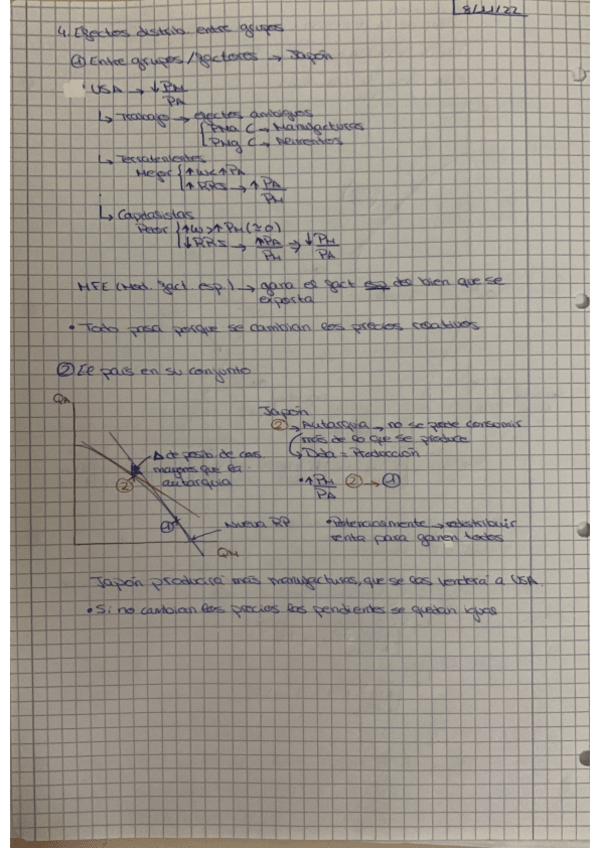 8/11/22
4. Efectos distrib. entre grupos
① Entre grupos/sectores → Japón
USA → ↓ PM/PA
↳ Trabajo → efectos ambiguos
PMa C → Manufacturas
PMg C → Alimentos
↳ Terratenientes
Mejor ↑w < ↑PA
↑RRS → ↑ PA/PM
↳ Capitalistas
Peor ↑w > ↑PM (≈0)
↓RRS → ↑PA/PM → ↓ PM/PA
MFE (Mod. fact. esp.) → gana el fact de bien que se
exporta
• Todo pasa porque se cambian los precios relativos
② El país en su conjunto
QA
Japón
② → Autarquía → no se puede consumir
más de lo que se produce
↳ Dda = Producción
Δ de posib de cons
mayores que en
autarquía
②
• ↑ PM/PA ② → ①
①
Nueva RP
QM
• Potencialmente → redistribuir
renta para ganen todos
Japón producirá más manufacturas, que se las venderá a USA.
• Si no cambian los precios las pendientes se quedan igual